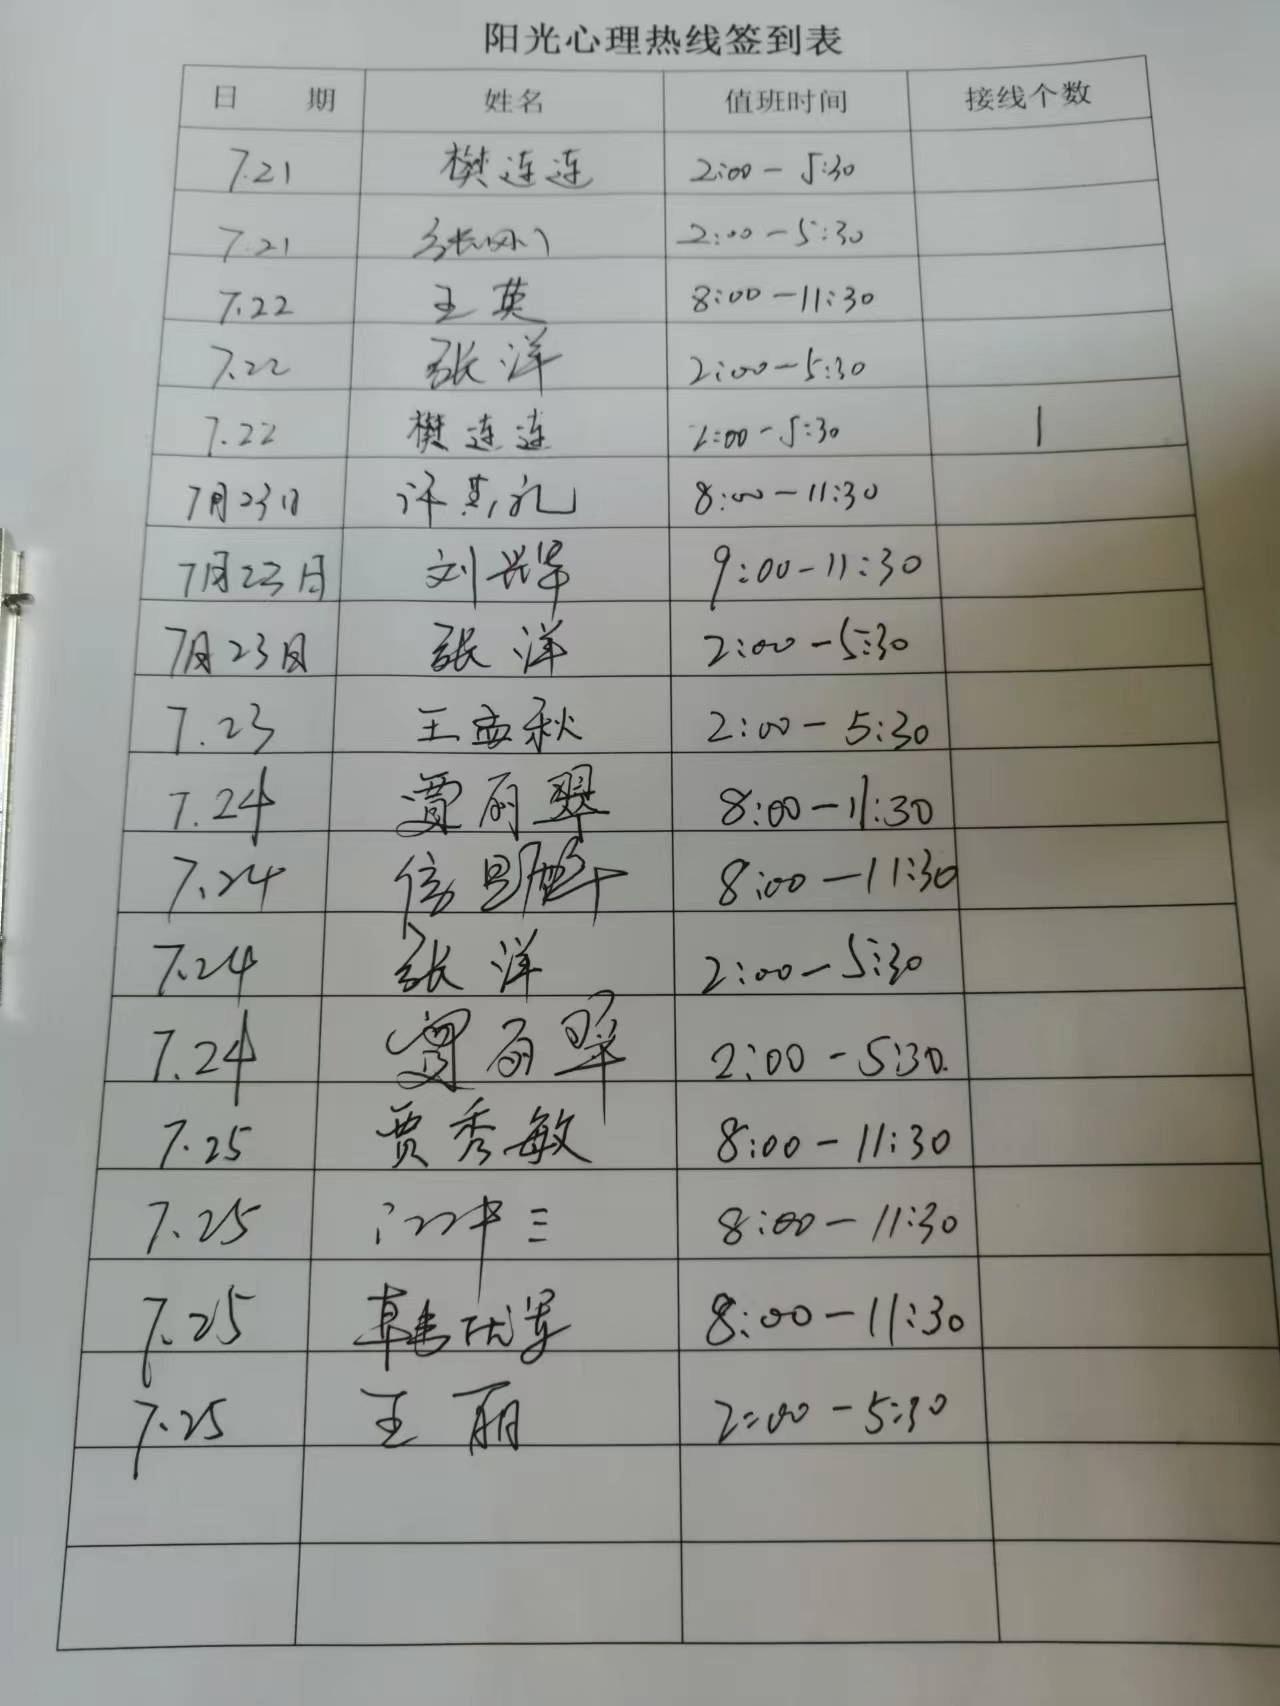 阳光心理热线签到表
日 期 姓名 值班时间 接线个数
7.21 樊连连 2:00-5:30
7.21 张刚 2:00-5:30
7.22 王英 8:00-11:30
7.22 张洋 2:00-5:30
7.22 樊连连 2:00-5:30 1
7月23日 许 礼 8:00-11:30
7月23日 刘兴华 9:00-11:30
7月23日 张洋 2:00-5:30
7.23 王孟秋 2:00-5:30
7.24 贾丽翠 8:00-11:30
7.24 8:00-11:30
7.24 张洋 2:00-5:30
7.24 贾丽翠 2:00-5:30.
7.25 贾秀敏 8:00-11:30
7.25 8:00-11:30
7.25 韩 军 8:00-11:30
7.25 王丽 2:00-5:30